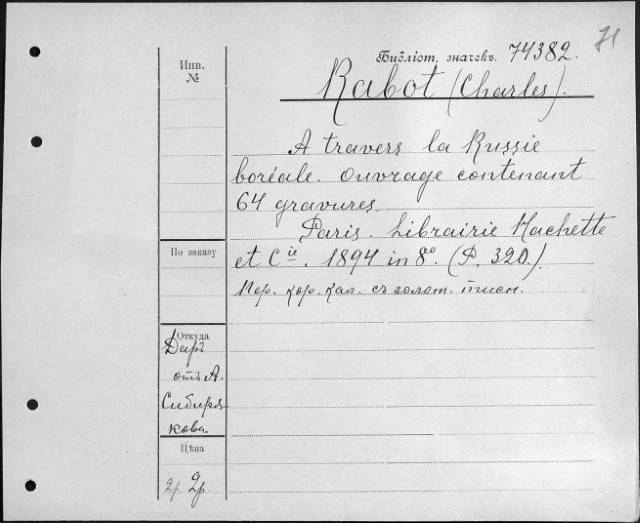 71
Библіот. значекъ. 74382.
Инв.
№
Rabot (Charles).
A travers la Russie
boréale. Ouvrage contenant
64 gravures.
Paris. Librairie Hachette
et Cie. 1894 in 8º. (P. 320.)
По заказу
Пер. кор. кал. съ золот. тисн.
Откуда
Даръ
отъ А.
Сибиря
кова.
Цѣна
2р 2р